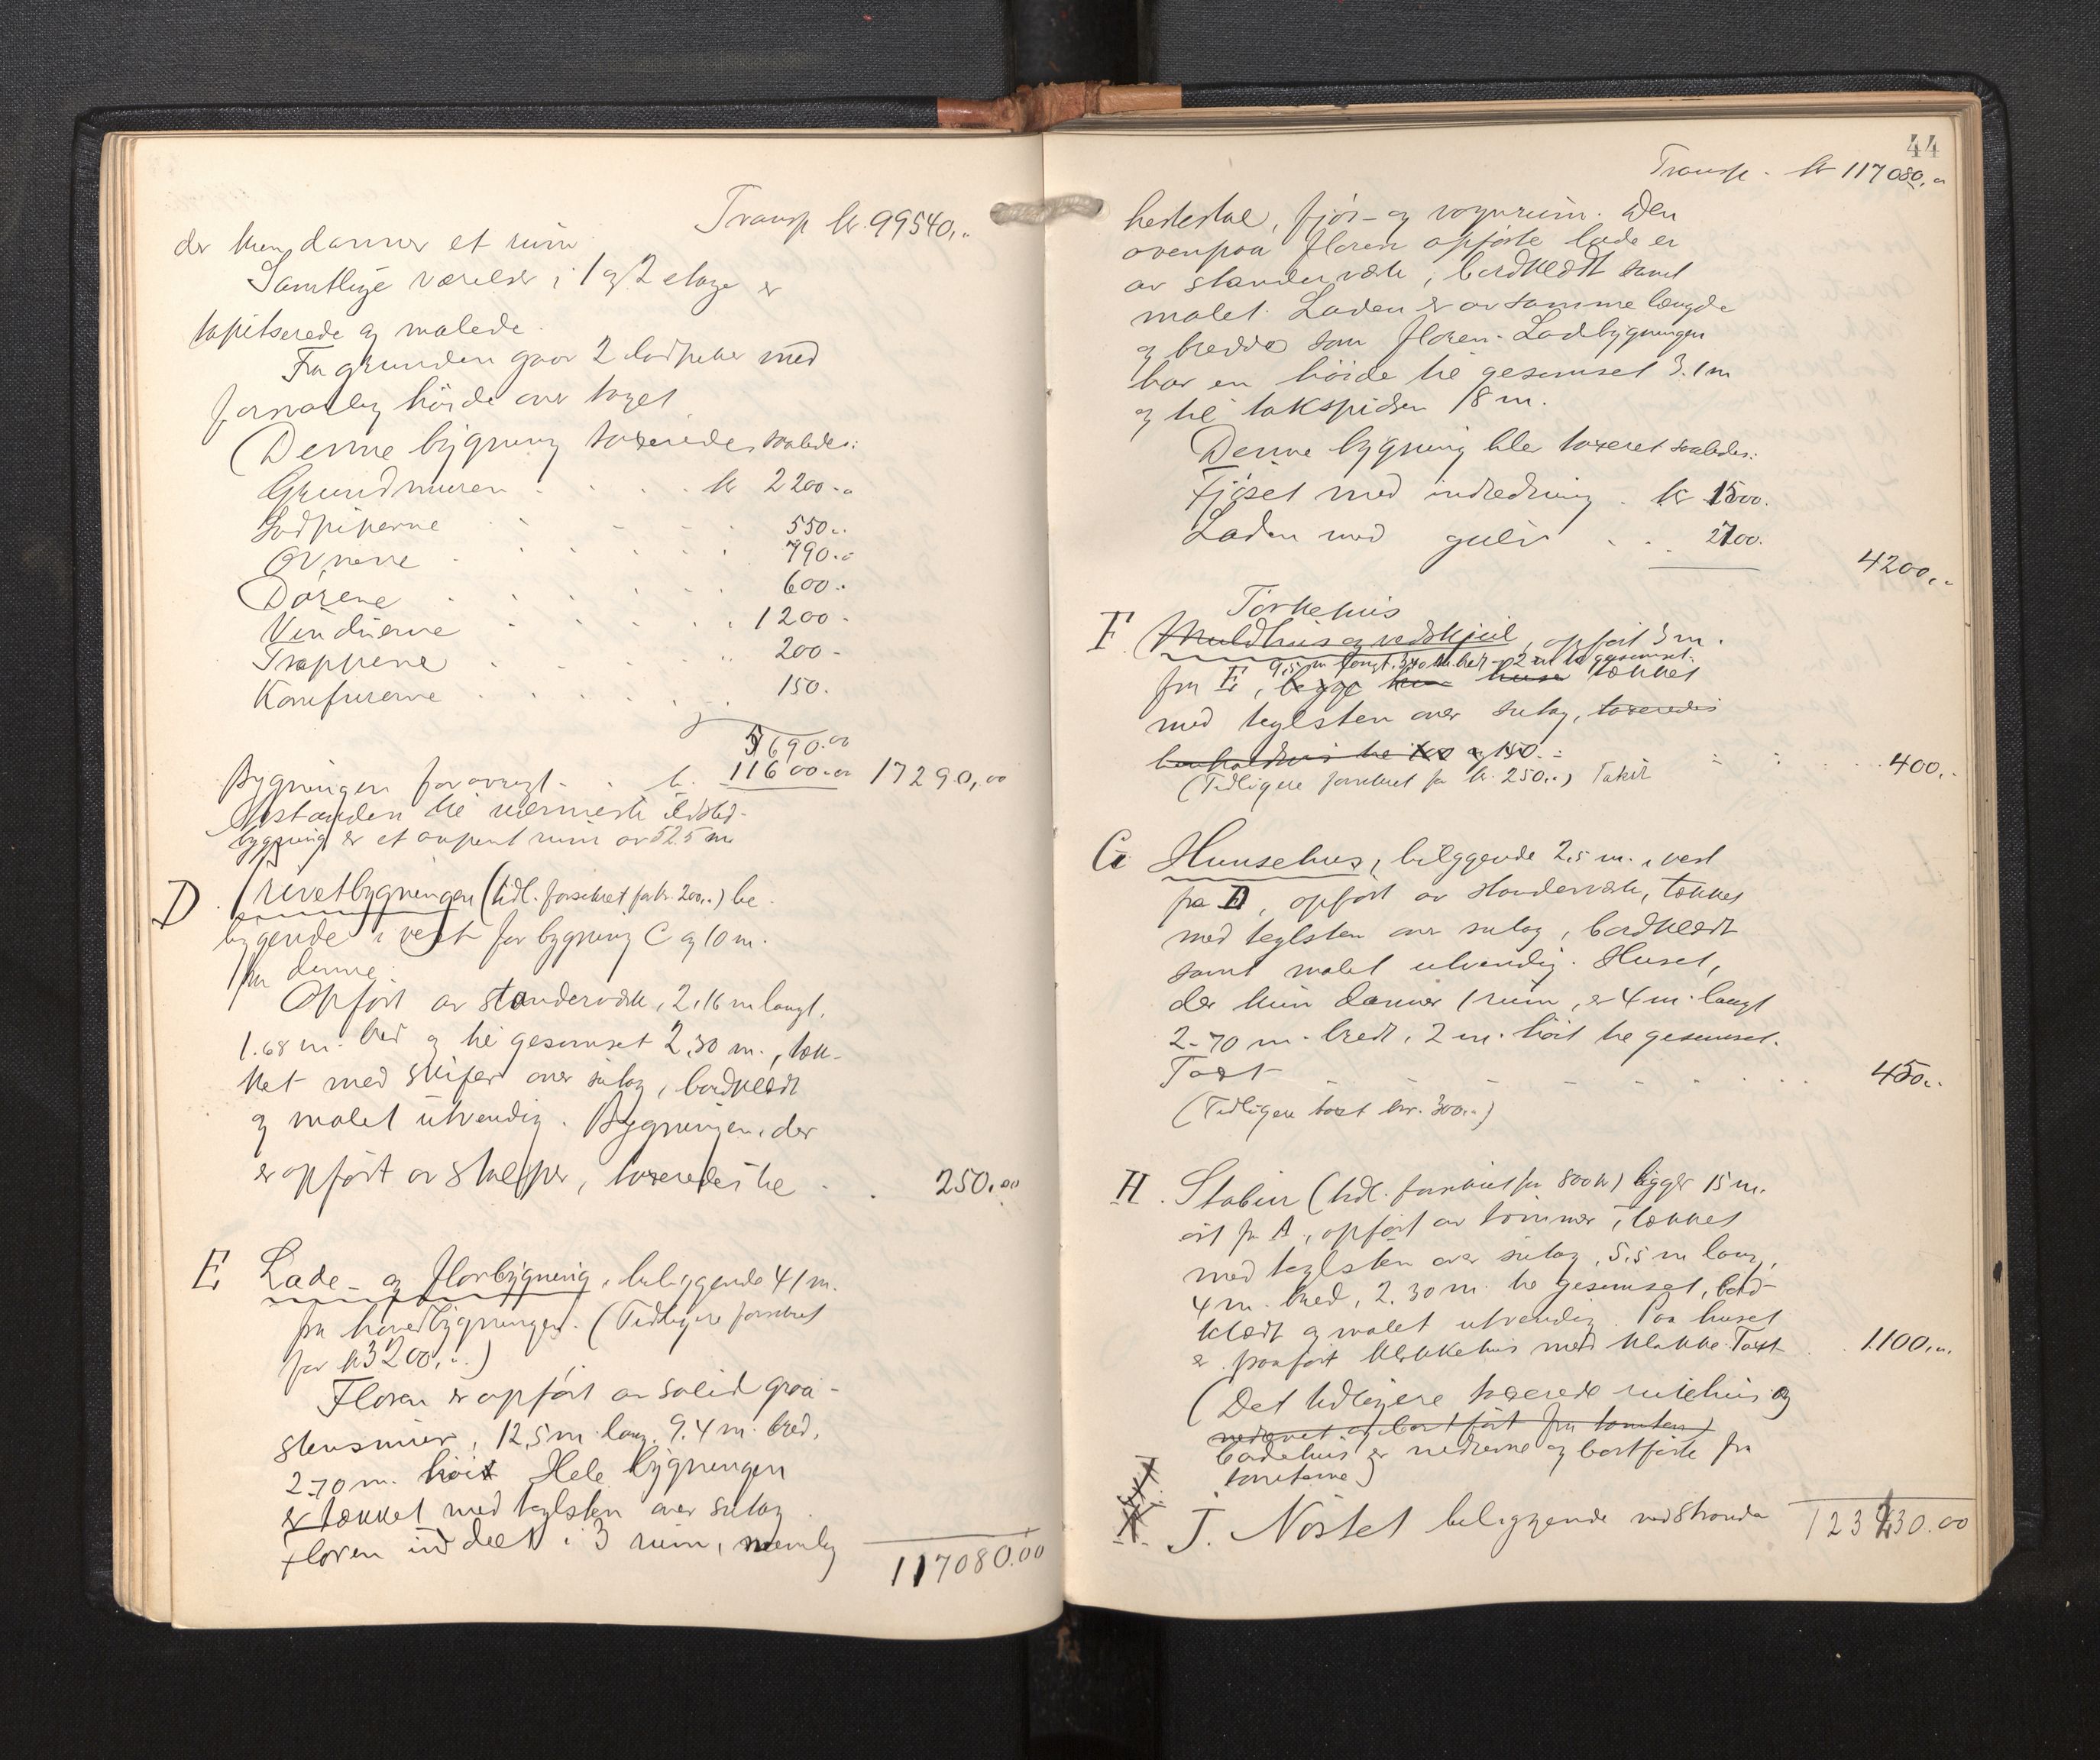 Transp kr. 99540,..
der kun danner et rum
Samtlige værelser i 1 og 2 etage er
tapitserede og malede.
Fra grunden gaar 2 lodpiber med
forsvarlig höide over taget
(Denne bygning taxeredes saaledes:
Grundmuren . . . . kr 2200..
Lodpiperne . - - . 550..
Ovnene . . . . . . 790..
Dörene . . . . . . 600..
Vinduerne . . . . . 1200.
Trappene . . . . . 200-
Komfurerne . . . . . 150.
5690.00
Bygningen forøvrigt . . k. 11600.00 17290,00
Afstanden til nærmeste ildsted-
bygning er et aapent rum av 52.5 m
D. Privetbygningen (tidl. forsikret for kr. 200,..) be-
liggende i vest for bygning C og 10 m.
fra denne.
Opfört av standerværk, 2,16 m langt,
1.68 m. bred og til gesemset 2.30 m., tæk-
ket med skifer over sutag, bordklædt
og malet utvendig. Bygningen, der
er opfört av stolper, taxeredes til . . 250.00
E Lade- og Florbygning, beliggende 41 m.
fra hovedbygningen. (Tidligere forsikret
for kr 3200,..)
Floren er opfört av solid graa-
stensmur, 12,5 m. lang, 9.4 m. bred,
2-70 m. höi. Hele bygningen
er tækket med teglsten over sutag.
Floren inddelt i 3 rum, nemlig
117080.00
44
Transp. kr 117080,..
hestestal, fjös- og vognrum. Den
ovenpaa floren opförte lade er
av standerværk, bordklædt samt
malet. Laden er av samme længde
og bredde som floren. Ladebygningen
har en höide til gesemset 3.1 m
og til takspidsen 8 m.
Denne bygning ble taxeret saaledes:
Fjöset med indredning . kr 1500.
Laden med gulv . . . 2700.
4200,..
Törkehus
F. Muldhus og vedskjul, opfört 3 m.
9,5 m langt, 3,40 m. bredt - 2 m til gesemset.
fra E, begge huse tækket
med teglsten over sutag, taxeredes
henholdsvis til 100 og 150.-
(Tidligere forsikret for kr. 250,..) Takst . . . . 400,.
G Hunsehus, beliggende 2,5 m. i vest
fra D, opfört av standerværk, tækket
med teglsten over sutag, bordklædt
samt malet utvendig. Huset,
der kun danner 1 rum, er 4 m. langt
2-70 m. bredt, 2 m. höit til gesemset.
Taxt - - - - - - . . . 450..
(Tidligere taxt kr. 300..)
H. Stabur (tidl. forsikret for 800 kr) ligger 15 m.
öst fra A, opfört av tömmer, tækket
med teglsten over sutag, 5,5 m lang,
4 m. bred, 2.30 m. til gesemset, bord-
klædt og malet utvendig. Paa huset
er paafört klokkehus med klokke. Taxt . . 1.100,..
(Det tidligere taxerede rullehus og
nedrevet og bortfört fra tomten)
badehus er nedrevne og bortförte fra
tomterne)
J. Nöstet beliggende ved Stranda
123230.00